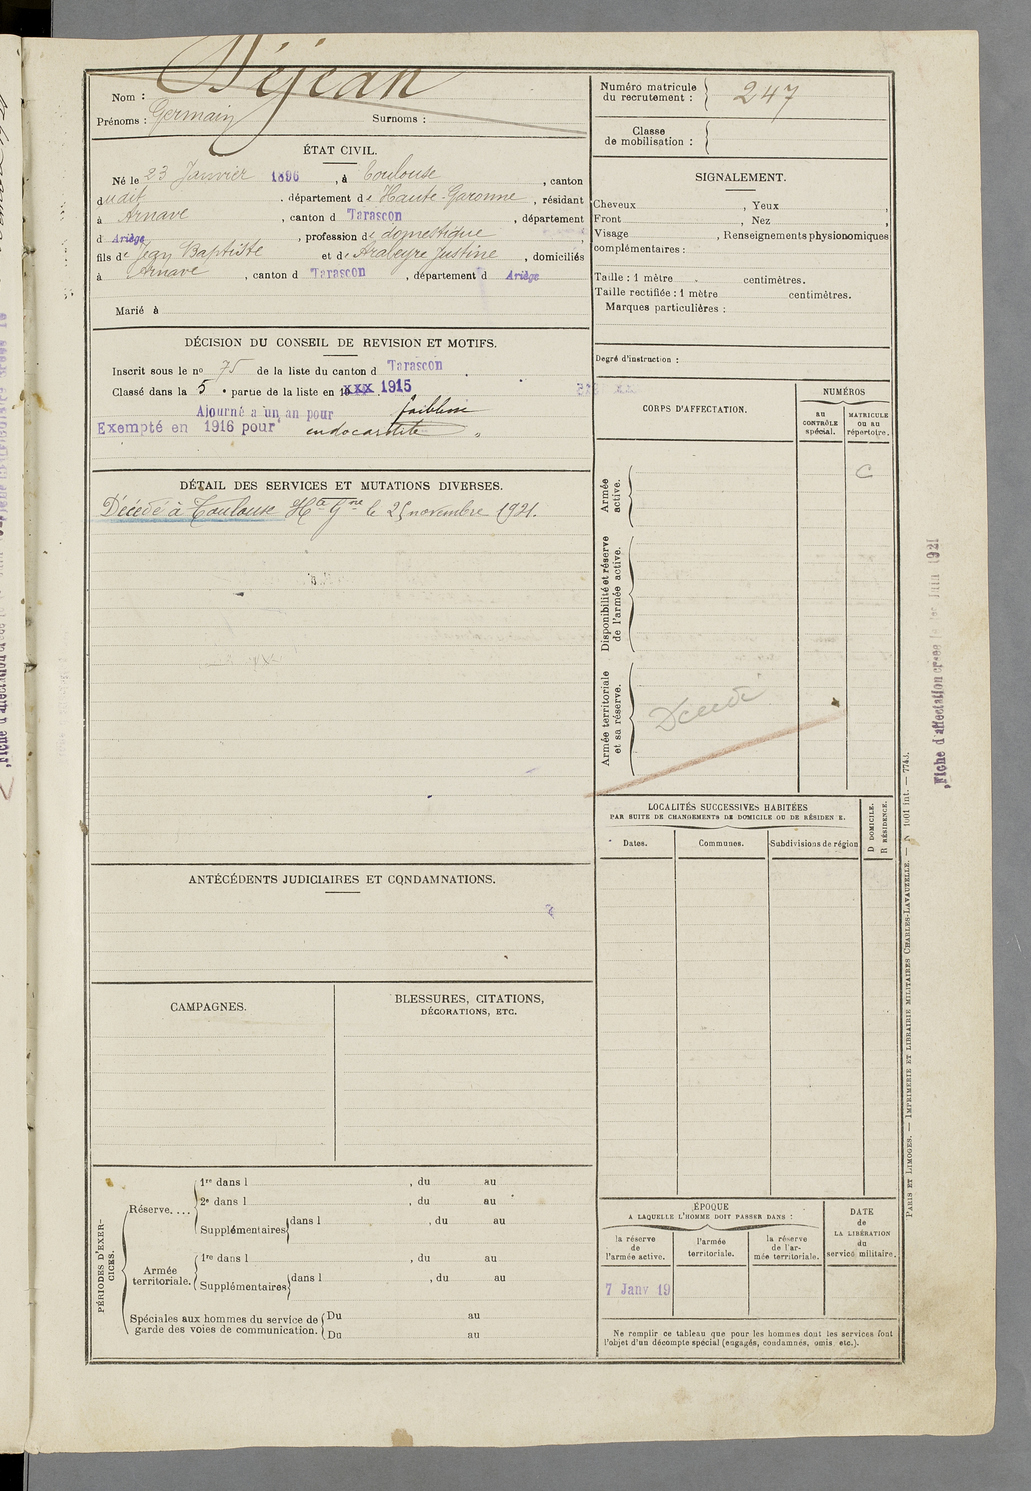 Nom : Déjean
Prénoms : Germain Surnoms :
ÉTAT CIVIL.
Né le 23 Janvier 1896, à Toulouse, canton
dudit, département de Haute-Garonne, résidant
à Arnave, canton d Tarascon, département
d Ariège, profession de domestique,
fils de Jean Baptiste et de Justine, domiciliés
à Arnave, canton d Tarascon, département d Ariège
Marié à
DÉCISION DU CONSEIL DE REVISION ET MOTIFS.
Inscrit sous le no 75 de la liste du canton d Tarascon.
Classé dans la 5e partie de la liste en 19xxx 1915
Ajourné a un an pour faiblesse
Exempté en 1916 pour endocardite
DÉTAIL DES SERVICES ET MUTATIONS DIVERSES.
Décédé à Toulouse Hte Gne le 25 novembre 1921.
ANTÉCÉDENTS JUDICIAIRES ET CONDAMNATIONS.
CAMPAGNES.
BLESSURES, CITATIONS,
DÉCORATIONS, ETC.
PÉRIODES D'EXER-
CICES.
Réserve....
1re dans l , du au
2e dans l , du au
Supplémentaires dans l , du au
Armée
territoriale.
1re dans l , du au
Supplémentaires dans l , du au
Spéciales aux hommes du service de
garde des voies de communication.
Du au
Du au
Numéro matricule
du recrutement : 247
Classe
de mobilisation :
SIGNALEMENT.
Cheveux , Yeux ,
Front , Nez ,
Visage , Renseignements physionomiques
complémentaires :
Taille : 1 mètre centimètres.
Taille rectifiée : 1 mètre centimètres.
Marques particulières :
Degré d'instruction :
CORPS D'AFFECTATION.
NUMÉROS
au
CONTRÔLE
spécial.
MATRICULE
ou au
répertoire.
C
Armée
active.
Disponibilité et réserve
de l'armée active.
Armée territoriale
et sa réserve.
Décédé
LOCALITÉS SUCCESSIVES HABITÉES
PAR SUITE DE CHANGEMENTS DE DOMICILE OU DE RÉSIDEN E.
D DOMICILE.
R RÉSIDENCE.
Dates.
Communes.
Subdivisions de région
ÉPOQUE
A LAQUELLE L'HOMME DOIT PASSER DANS :
la réserve
de
l'armée active.
l'armée
territoriale.
la réserve
de l'ar-
mée territoriale.
DATE
de
LA LIBÉRATION
du
service militaire.
7 Janv 19
Ne remplir ce tableau que pour les hommes dont les services font
l'objet d'un décompte spécial (engagés, condamnés, omis, etc.).
PARIS ET LIMOGES. — IMPRIMERIE ET LIBRAIRIE MILITAIRES CHARLES-LAVAUZELLE. — N 1601 int. — 7743.
Fiche d'affectation créée le 1er Juin 1921